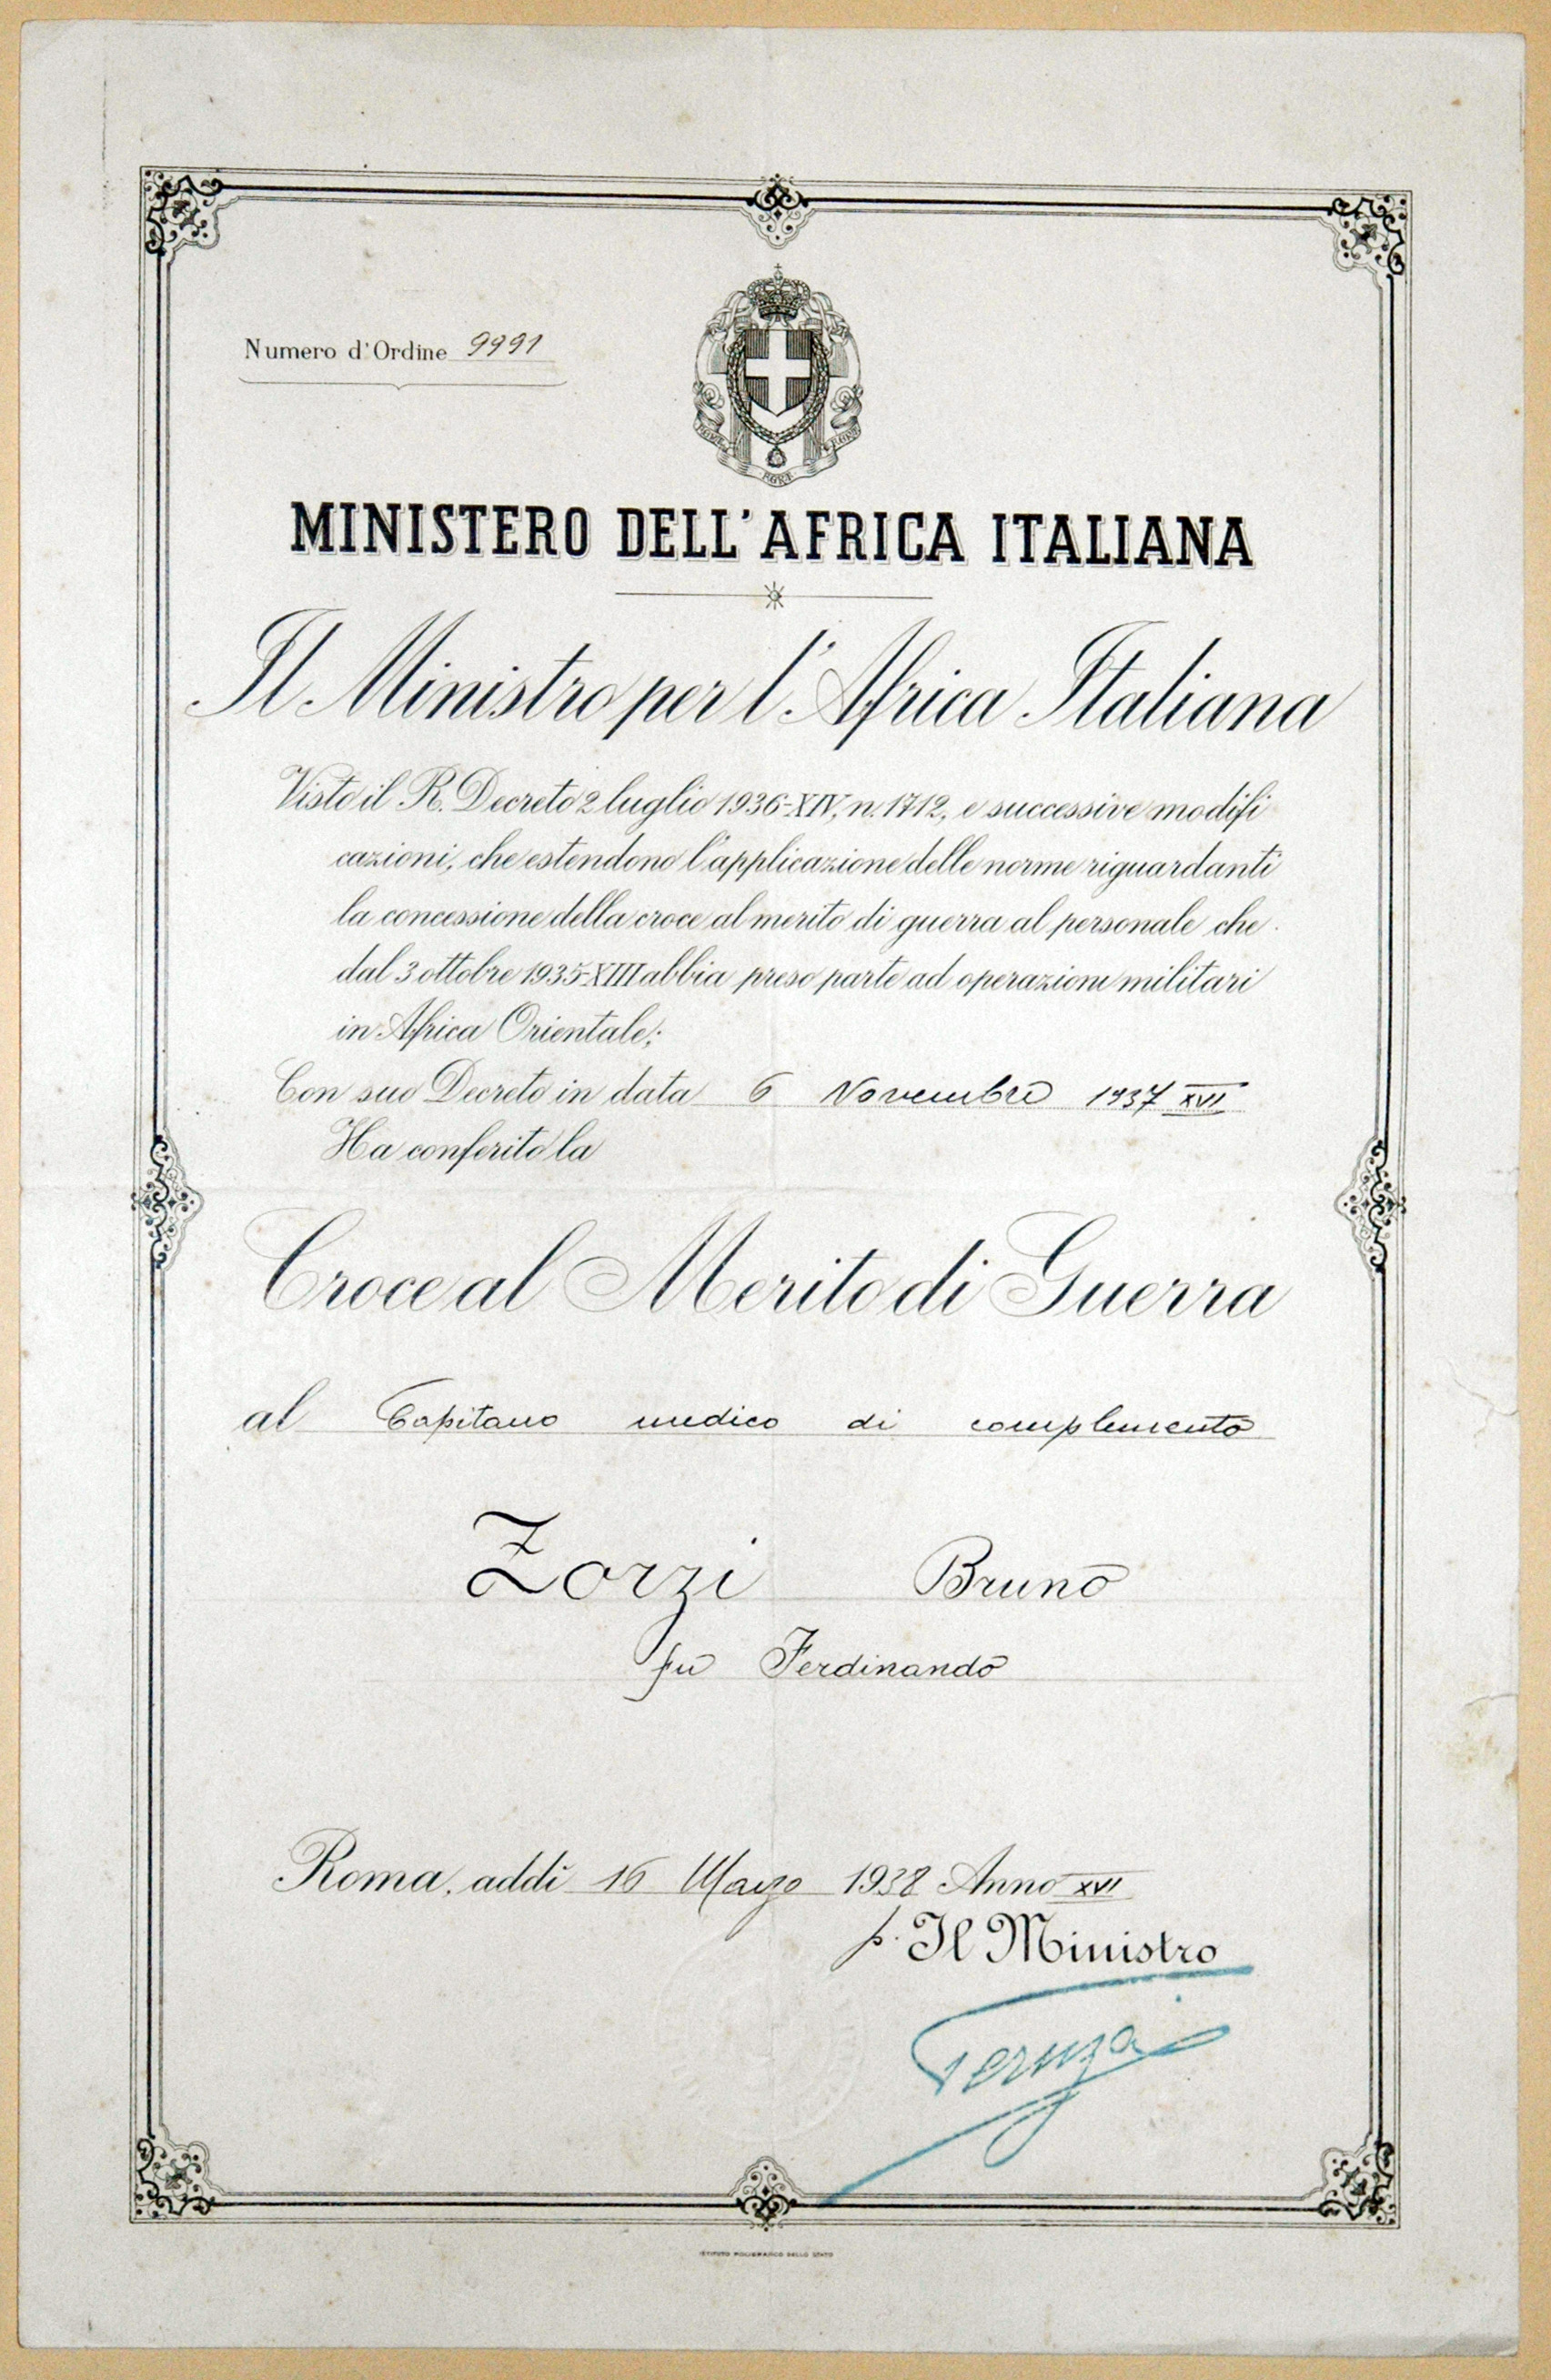 Numero d'Ordine 9991
FERT FERT FERT
MINISTERO DELL'AFRICA ITALIANA
Il Ministro per l'Africa Italiana
Visto il R. Decreto 2 luglio 1936-XIV, n. 1712, e successive modifi
cazioni, che estendono l'applicazione delle norme riguardanti
la concessione della croce al merito di guerra al personale che
dal 3 ottobre 1935-XIII abbia preso parte ad operazioni militari
in Africa Orientale;
Con suo Decreto in data 6 Novembre 1937 XVI
Ha conferito la
Croce al Merito di Guerra
al Capitano medico di complemento
Zorzi Bruno
fu Ferdinando
Roma, addì 16 Marzo 1938 Anno XVI
p. Il Ministro
Teruzzi
ISTITUTO POLIGRAFICO DELLO STATO